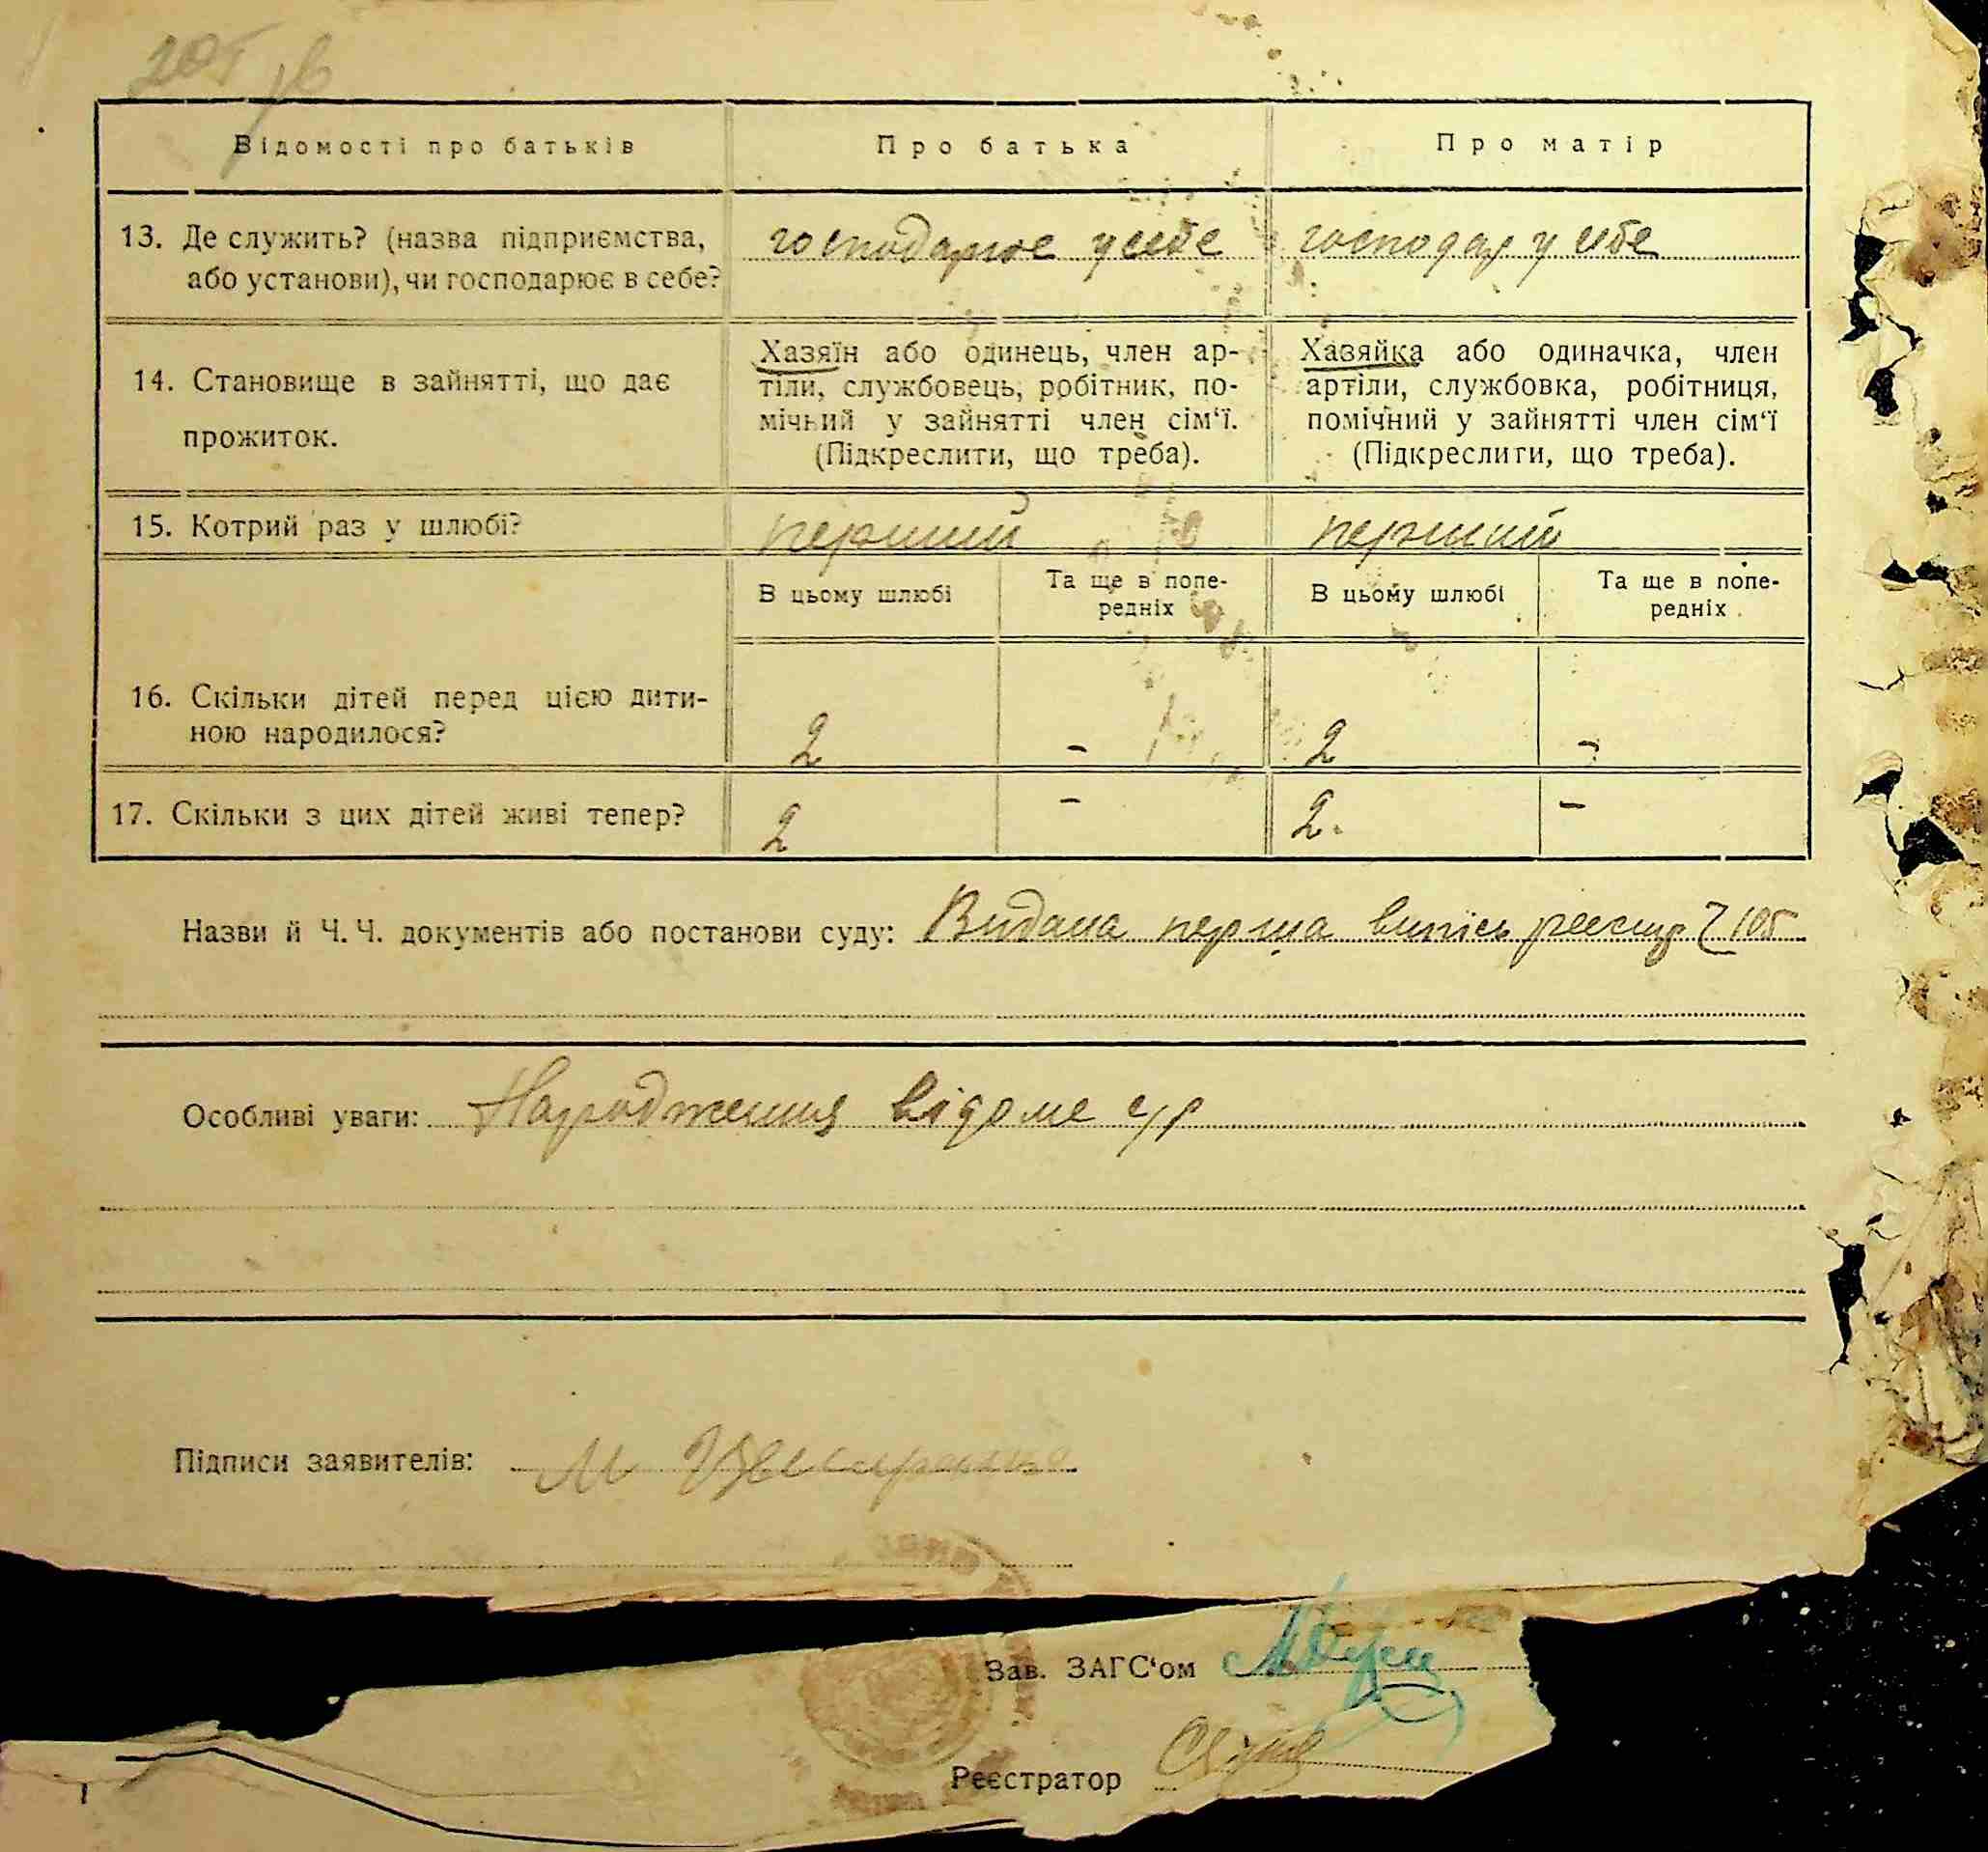 Відомості про батьків
Про батька
Про матір
13. Де служить? (назва підприємства,
або установи), чи господарює в себе?
господарює у себе
господар у себе
14. Становище в зайнятті, що дає
прожиток.
Хазяїн або одинець, член ар-
тіли, службовець, робітник, по-
мічний у зайнятті член сім‘ї.
(Підкреслити, що треба).
Хазяйка або одиначка, член
артіли, службовка, робітниця,
помічний у зайнятті член сім‘ї
(Підкреслити, що треба).
15. Котрий раз у шлюбі?
перший
перший
В цьому шлюбі
Та ще в попе-
редніх
В цьому шлюбі
Та ще в попе-
редніх
16. Скільки дітей перед цією дити-
ною народилося?
2
-
2
-
17. Скільки з цих дітей живі тепер?
2
-
2.
-
Назви й Ч. Ч. документів або постанови суду: Видана перша випись реєстр Ч 105
Особливі уваги: Народження відоме с/р
Підписи заявителів: М
Зав. ЗАГС‘ом
Реєстратор